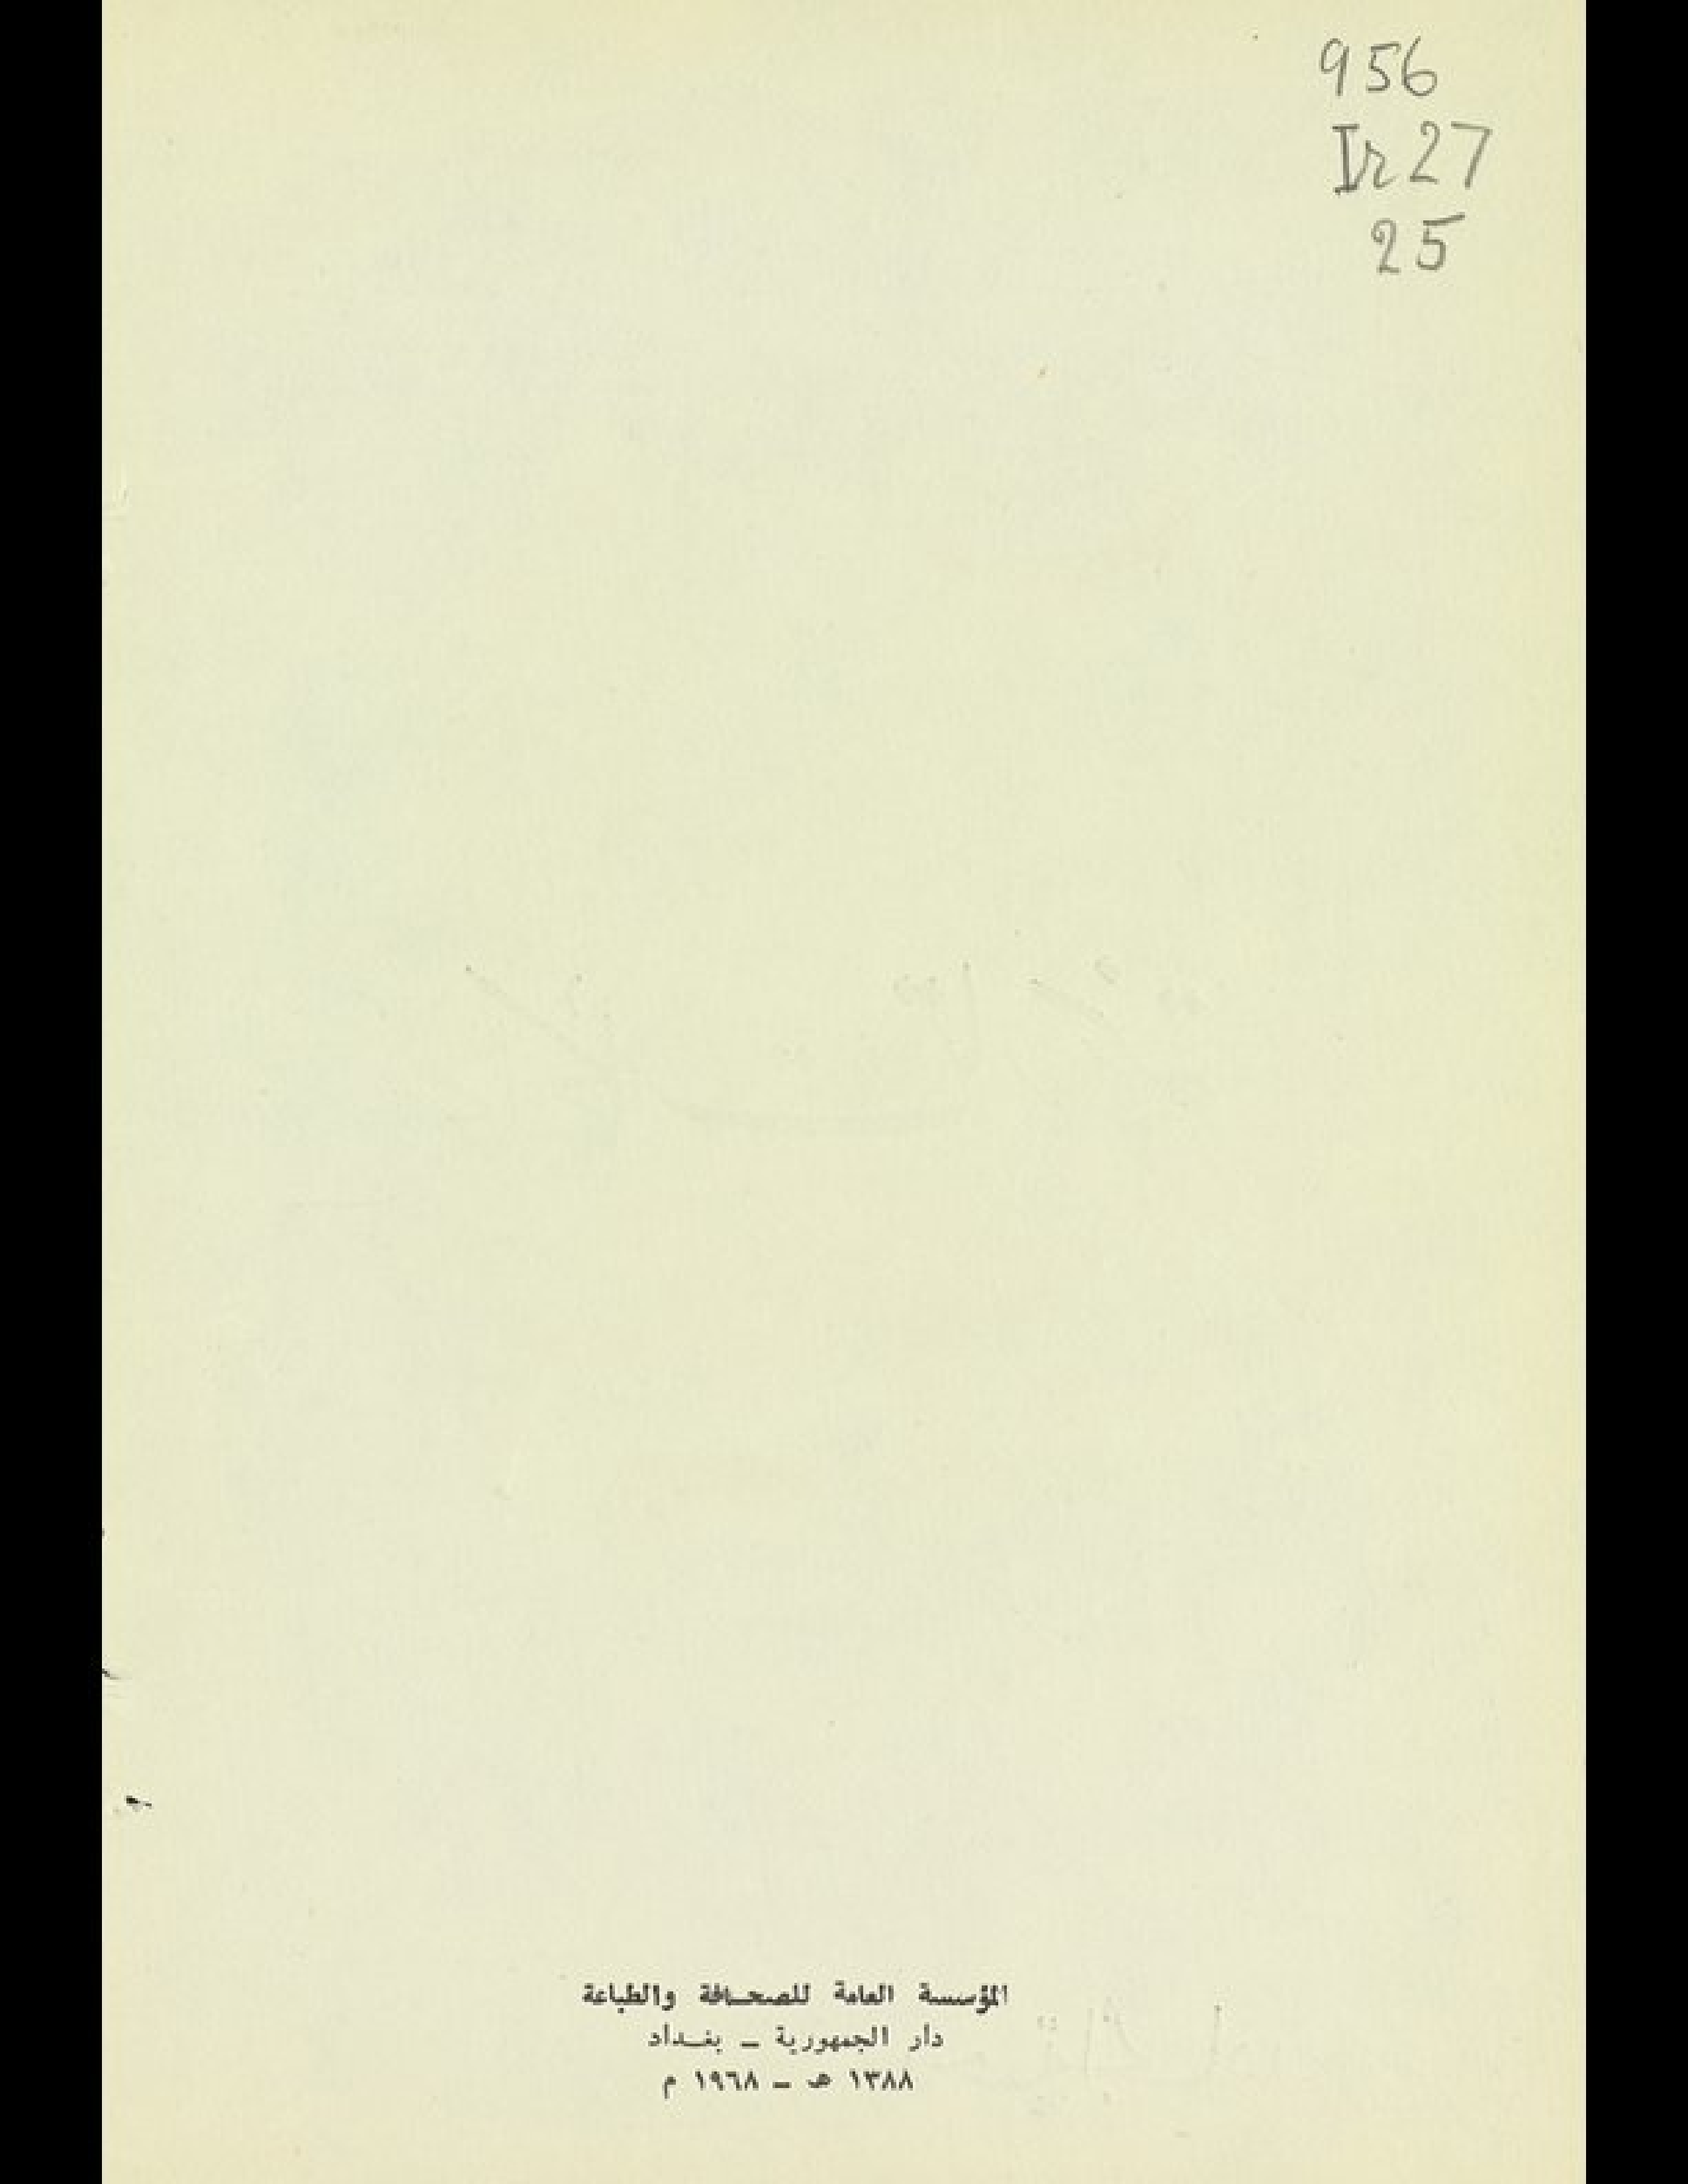 956
Ir 27
25
المؤسسة العامة للصحافة والطباعة
دار الجمهورية ــ بغداد
١٣٨٨ هـ ــ ١٩٦٨ م